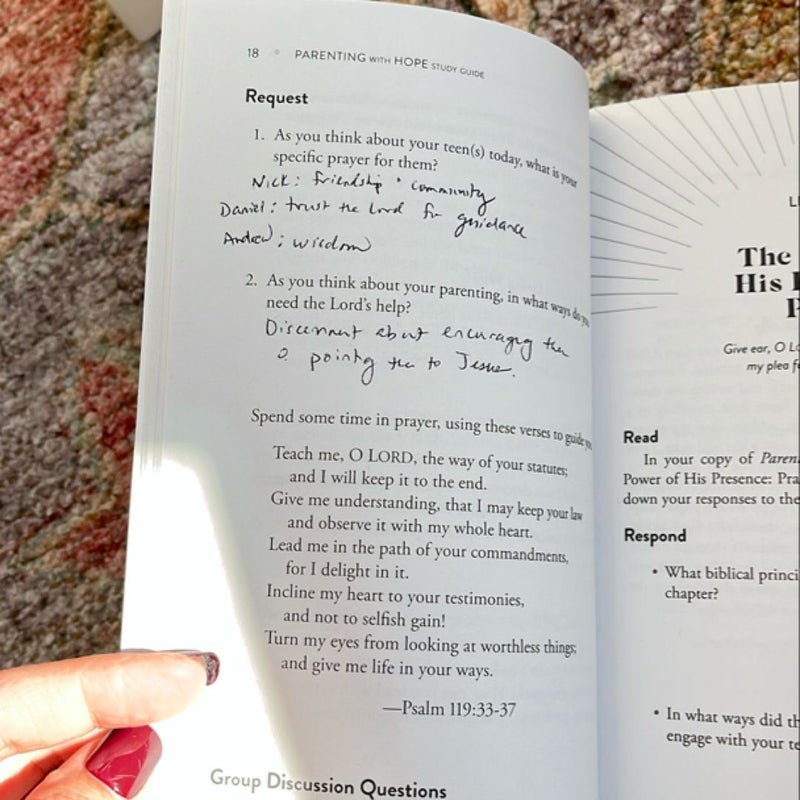 18 • PARENTING WITH HOPE STUDY GUIDE
Request
1. As you think about your teen(s) today, what is your
specific prayer for them?
Nick: friendship + community
Daniel: trust the Lord for guidance
Andrew: wisdom
2. As you think about your parenting, in what ways do you
need the Lord's help?
Discernment about encouraging them
& pointing them to Jesus.
Spend some time in prayer, using these verses to guide you
Teach me, O LORD, the way of your statutes;
and I will keep it to the end.
Give me understanding, that I may keep your law
and observe it with my whole heart.
Lead me in the path of your commandments,
for I delight in it.
Incline my heart to your testimonies,
and not to selfish gain!
Turn my eyes from looking at worthless things;
and give me life in your ways.
—Psalm 119:33-37
Group Discussion Questions
The
His
Give ear, O
my plea
Read
In your copy of
Power of His Presence:
down your responses to the
Respond
• What biblical
chapter?
• In what ways did
engage with your